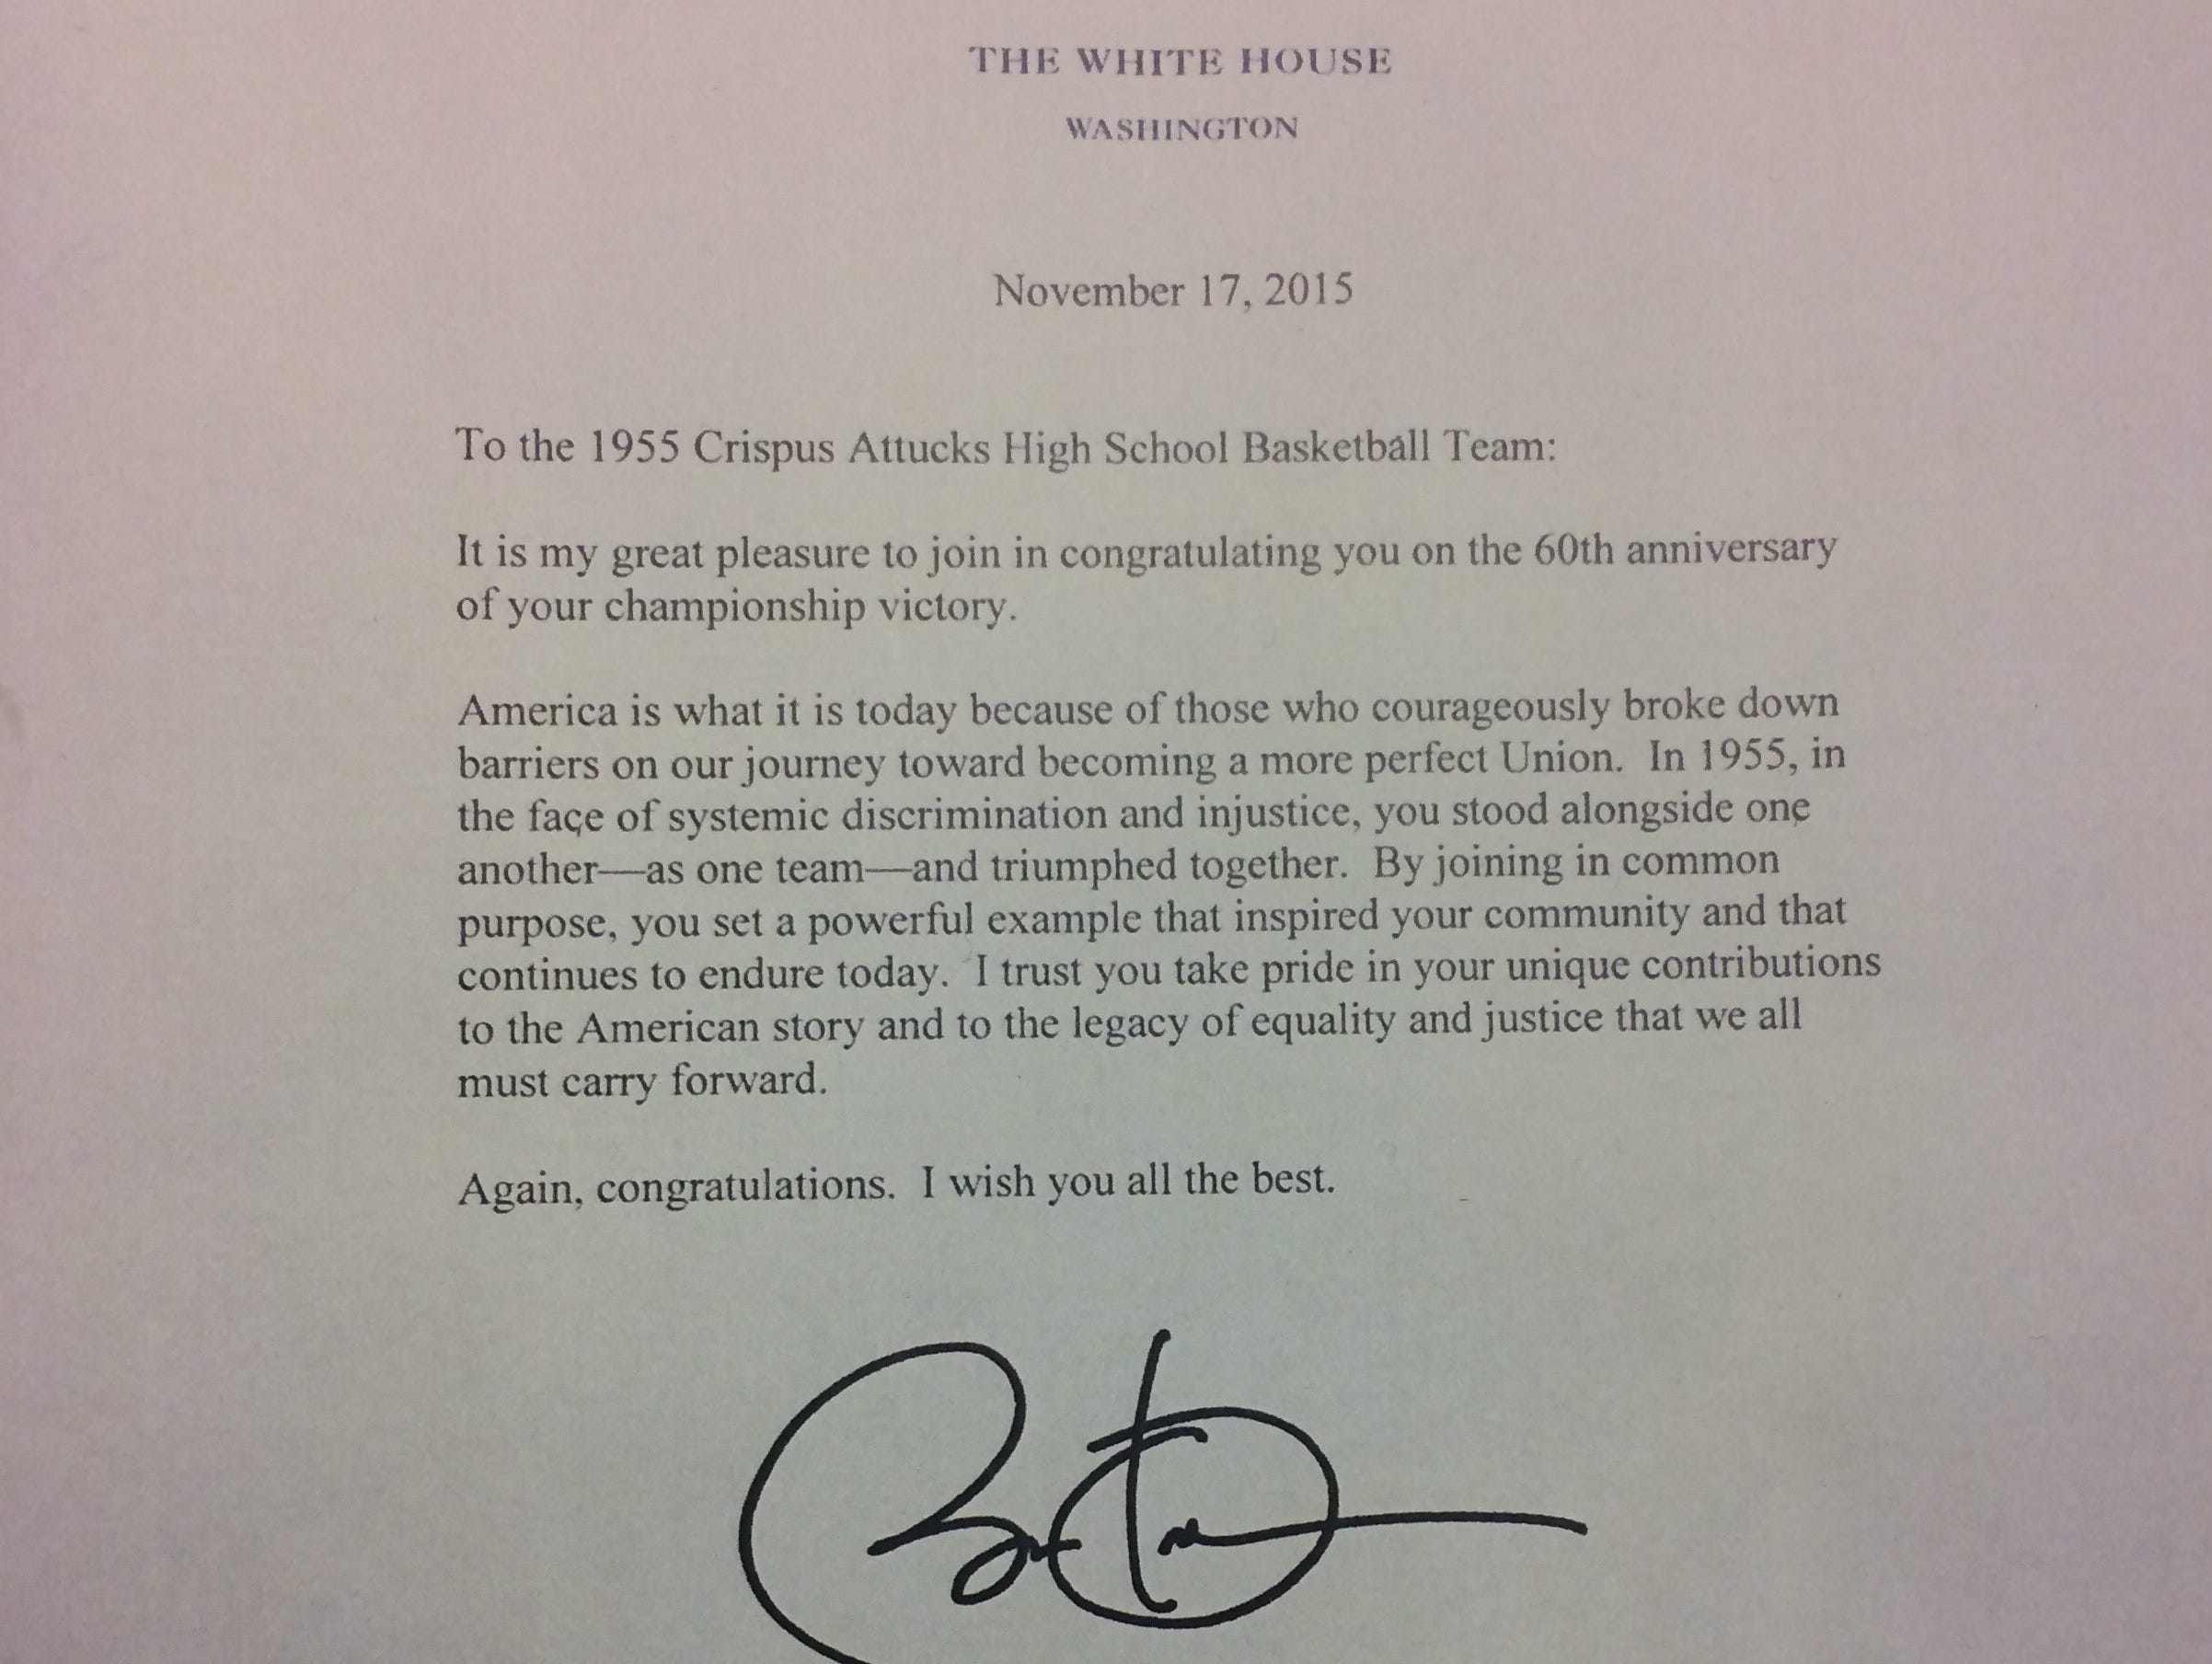 THE WHITE HOUSE
WASHINGTON
November 17, 2015
To the 1955 Crispus Attucks High School Basketball Team:
It is my great pleasure to join in congratulating you on the 60th anniversary
of your championship victory.
America is what it is today because of those who courageously broke down
barriers on our journey toward becoming a more perfect Union.  In 1955, in
the face of systemic discrimination and injustice, you stood alongside one
another—as one team—and triumphed together.  By joining in common
purpose, you set a powerful example that inspired your community and that
continues to endure today.  I trust you take pride in your unique contributions
to the American story and to the legacy of equality and justice that we all
must carry forward.
Again, congratulations.  I wish you all the best.